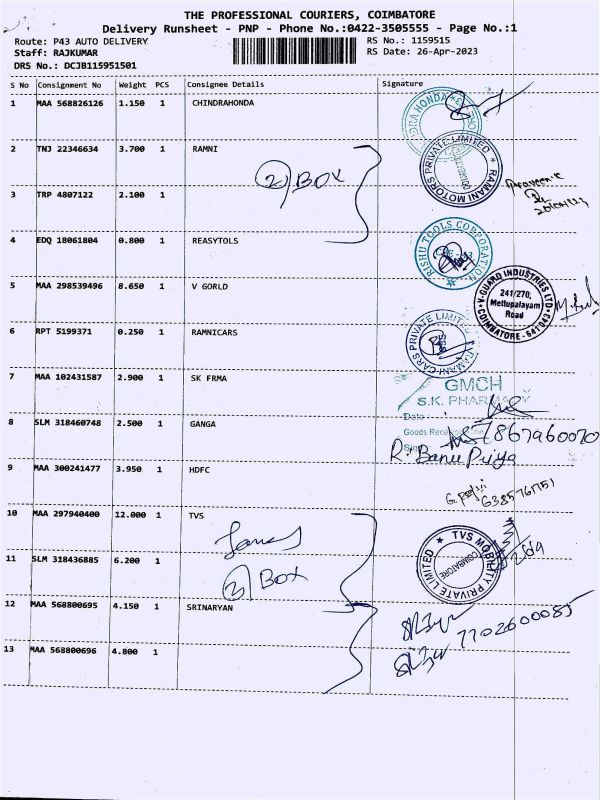 THE PROFESSIONAL COURIERS, COIMBATORE
Delivery Runsheet - PNP - Phone No.:0422-3505555 - Page No.:1
Route: P43 AUTO DELIVERY
RS No.: 1159515
Staff: RAJKUMAR
RS Date: 26-Apr-2023
DRS No.: DCJB115951501
S No Consignment No Weight PCS Consignee Details Signature
1 MAA 568826126 1.150 1 CHINDRAHONDA
2 TNJ 22346634 3.700 1 RAMNI
RAMANI MOTORS PRIVATE LIMITED
2 BOX
3 TRP 4807122 2.100 1
4 EDQ 18061804 0.800 1 REASYTOLS
RISHU TOOLS CORPORATION
5 MAA 298539496 8.650 1 V GORLD
V-GUARD INDUSTRIES LTD
241/270,
Mettupalayam
Road
COIMBATORE - 641 043
6 RPT 5199371 0.250 1 RAMNICARS
RAMANI CARS PRIVATE LIMITED
7 MAA 102431587 2.900 1 SK FRMA
GMCH
S.K. PHARMACY
Date
8 SLM 318460748 2.500 1 GANGA
Goods Rece
7867960070
R. Banu Priya
9 MAA 300241477 3.950 1 HDFC
6385761751
10 MAA 297940400 12.000 1 TVS
TVS MOBILITY PRIVATE LIMITED
COIMBATORE
11 SLM 318436885 6.200 1
Box
12 MAA 568800695 4.150 1 SRINARYAN
7702600085
13 MAA 568800696 4.800 1